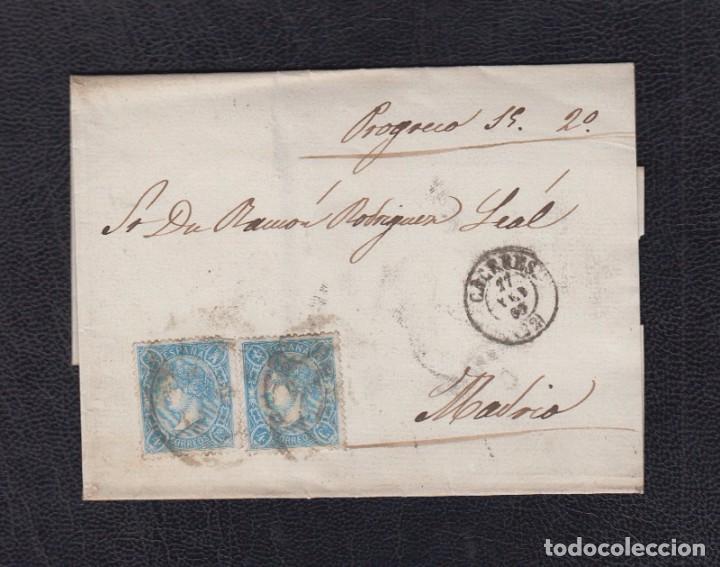 Progreso 15. 2º
Sr Dn Ramón Rodriguez Leál
CACERES
27
65
Madrid
ESPAÑA
CORREOS
ESPAÑA
CORREOS
todocoleccion